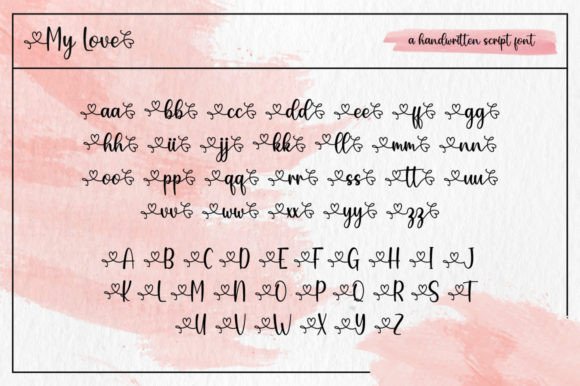 My Love
a handwritten script font
aa bb cc dd ee ff gg
hh ii jj kk ll mm nn
oo pp qq rr ss tt uu
vv ww xx yy zz
A B C D E F G H I J
K L M N O P Q R S T
U V W X Y Z